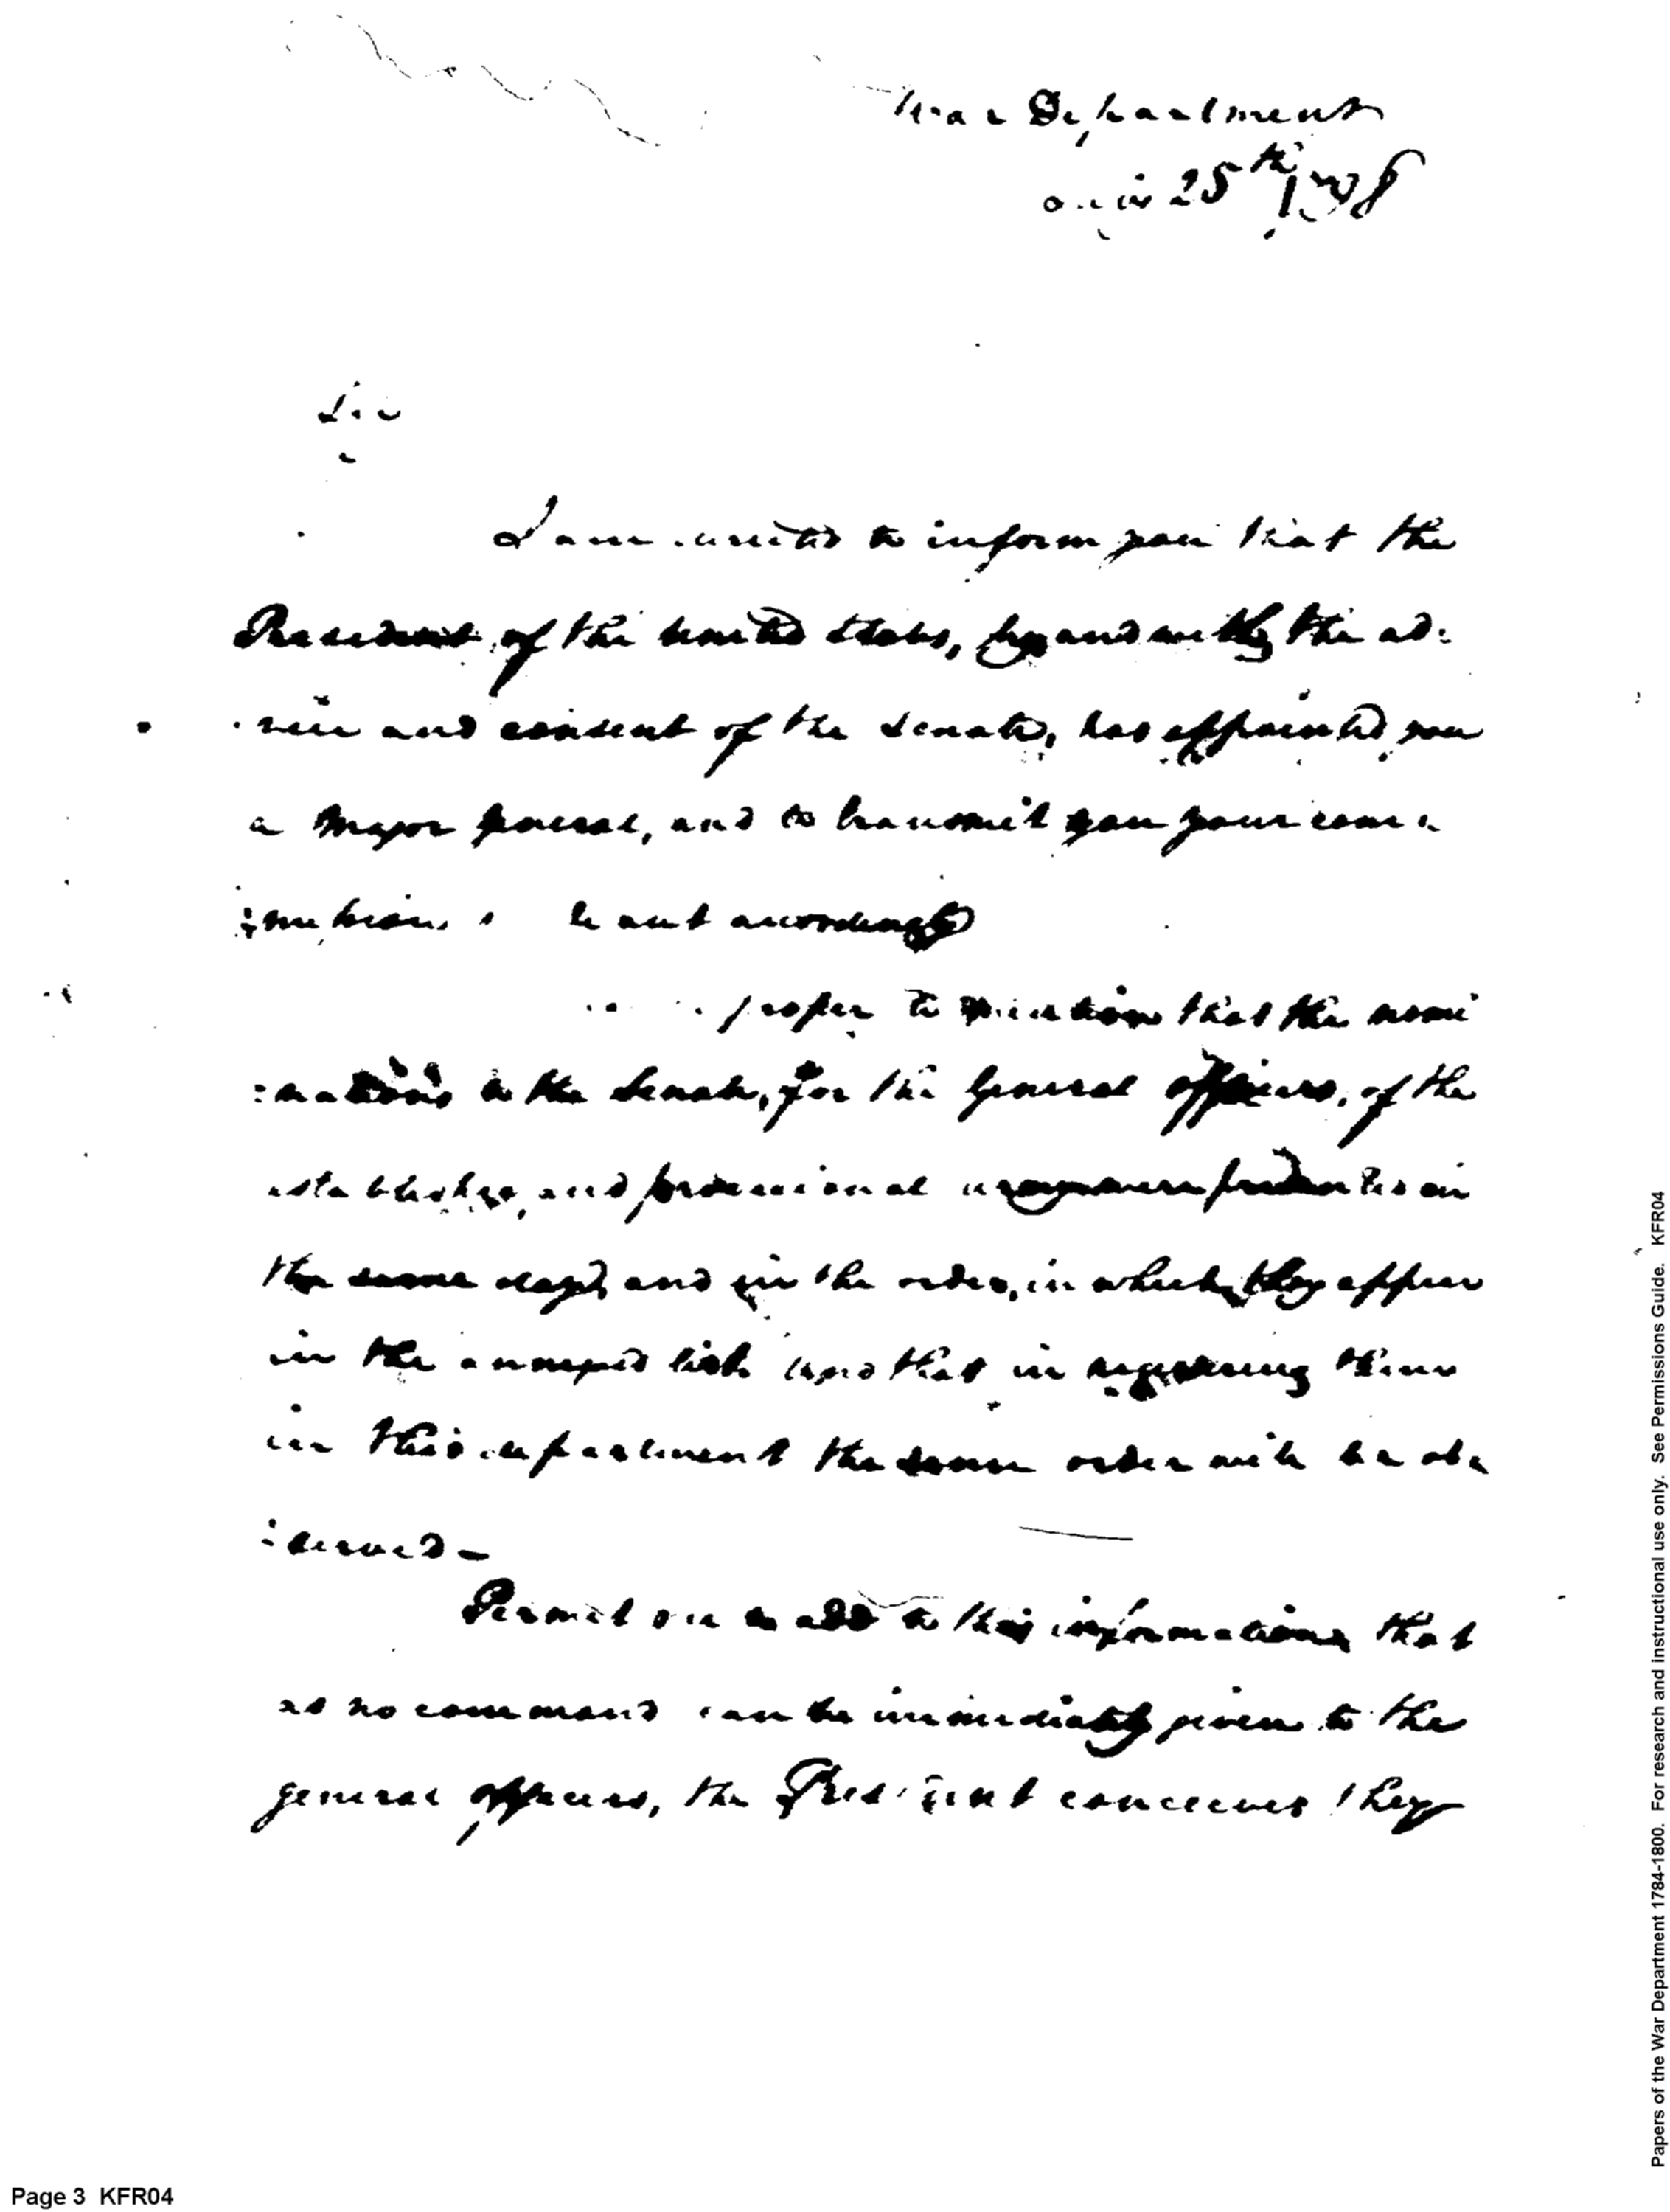 War Department
25th 1798
Sir
I am directed to inform you that the
President of the United States, by and with the ad:
:vice and consent of the Senate, has appointed you
a Major General, and to transmit you your com:
:mission accordingly
proper to mention that the nomi
:nations to the Senate, for the General officers, of the
established and provisional army were presented on
the same day, and in the order, in which they appear
in the annexed list and that in registering them
in this department the same order will be ob:
:served—
Permit me to add to this information, that
as no command can be immediately given to the
general officers, the President conceives they
Page 3 KFR04
Papers of the War Department 1784-1800. For research and instructional use only. See Permissions Guide. KFR04